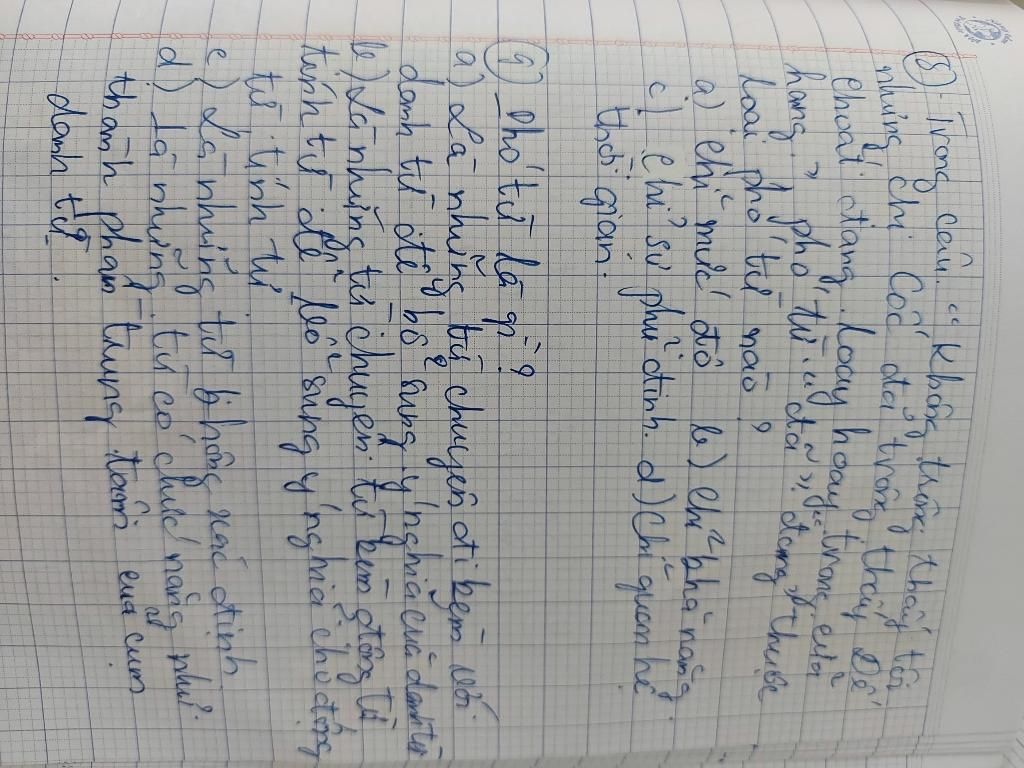 ⑧. Trong câu. " Không trông thấy tôi
nhưng chị Cốc đã trông thấy Dế
Choắt đang loay hoay trong cửa
hang. » phó từ " đã ", " đang " thuộc
loại phó từ nào?
a) Chỉ mức độ b) Chỉ khả năng
c) Chỉ sự phủ định. d) Chỉ quan hệ
thời gian.
⑨ Phó từ là gì?
a) Là những từ chuyên đi kèm với.
danh từ để bổ sung ý nghĩa của danh từ
b) Là những từ chuyên từ kèm động từ
tính từ để bổ sung ý nghĩa cho động
từ tính từ.
c) Là những từ không xác định
d) Là những từ có chức năng phụ
thành phần trung tâm của cụm
danh từ.